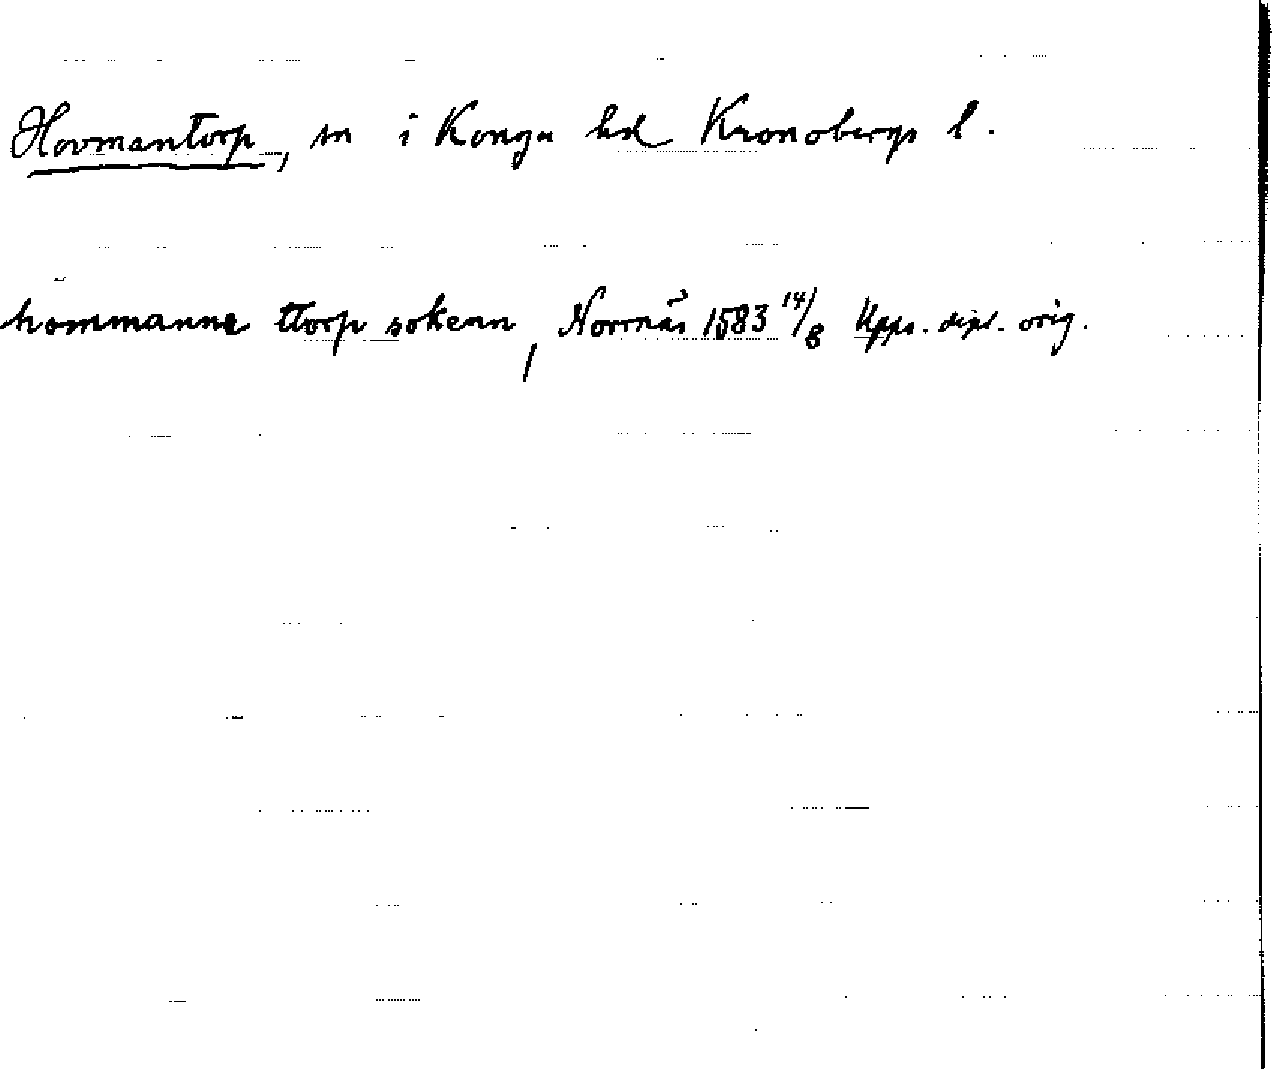 Hovmantorp, sn i Konga hd Kronobergs l.
hommanne ttorp sokenn, Norrnäs 1583 14/8 Upps. dipl. orig.